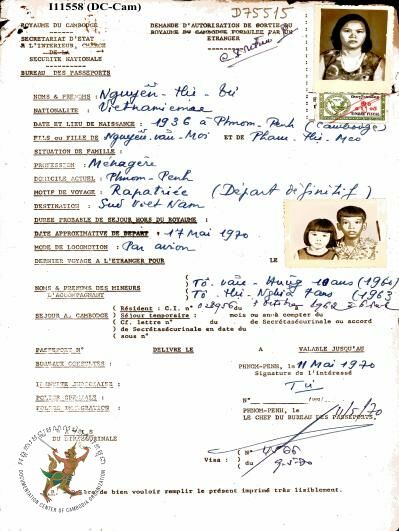 I11558 (DC-Cam)
ROYAUME DU CAMBODGE
SECRETARIAT D'ETAT
A L'INTERIEUR, CHARGE
DE LA
SECURITE NATIONALE
BUREAU DES PASSEPORTS
D75515
DEMANDE D'AUTORISATION DE SORTIE DU
ROYAUME DU CAMBODGE FORMULEE PAR UN
ETRANGER
NOMS & PRENOMS : Nguyễn-thị-Tư
NATIONALITE : Vietnamienne
DATE ET LIEU DE NAISSANCE : 1936 à Phnom-Penh (Cambodge)
FILS ou FILLE de Nguyễn-văn-Moi ET DE Pham-thi-Meo
SITUATION DE FAMILLE :
PROFESSION : Ménagère
DOMICILE ACTUEL : Phnom-Penh
MOTIF DU VOYAGE : Rapatriée (Départ définitif)
DESTINATION : Sud Viet Nam
DUREE PROBABLE DE SEJOUR HORS DU ROYAUME :
DATE APPROXIMATIVE DE DEPART : 17 Mai 1970
MODE DE LOCOMOTION : Par avion
DERNIER VOYAGE A L'ETRANGER POUR LE
NOMS & PRENOMS DES MINEURS
L'ACCOMPAGNANT
Tô-văn-Hưng 10 ans (1960)
Tô-thị-Nghĩa 7 ans (1963)
SEJOUR AU CAMBODGE
Résident : C.I. n°
Séjour temporaire : mois ou an à compter du
Cf. lettre n° du de Secrétaséourinale ou accord
de Secrétaséourinale en date du
sous n°
PASSEPORT N° DELIVRE LE A VALABLE JUSQU'AU
BUREAUX CONSULTES :
PHNOM-PENH, le 11 Mai 1970
Signature de l'intéressé
Tư
IDENTITE JUDICIAIRE :
POLICE SPECIALE :
POLICE IMMIGRATION :
N°
PHNOM-PENH, le 11/5/70
LE CHEF DU BUREAU DES PASSEPORTS
Visa :
N°
du 9-5-70
de bien vouloir remplir le présent imprimé très lisiblement.
DOCUMENTATION CENTER OF CAMBODIA ORGANIZATION